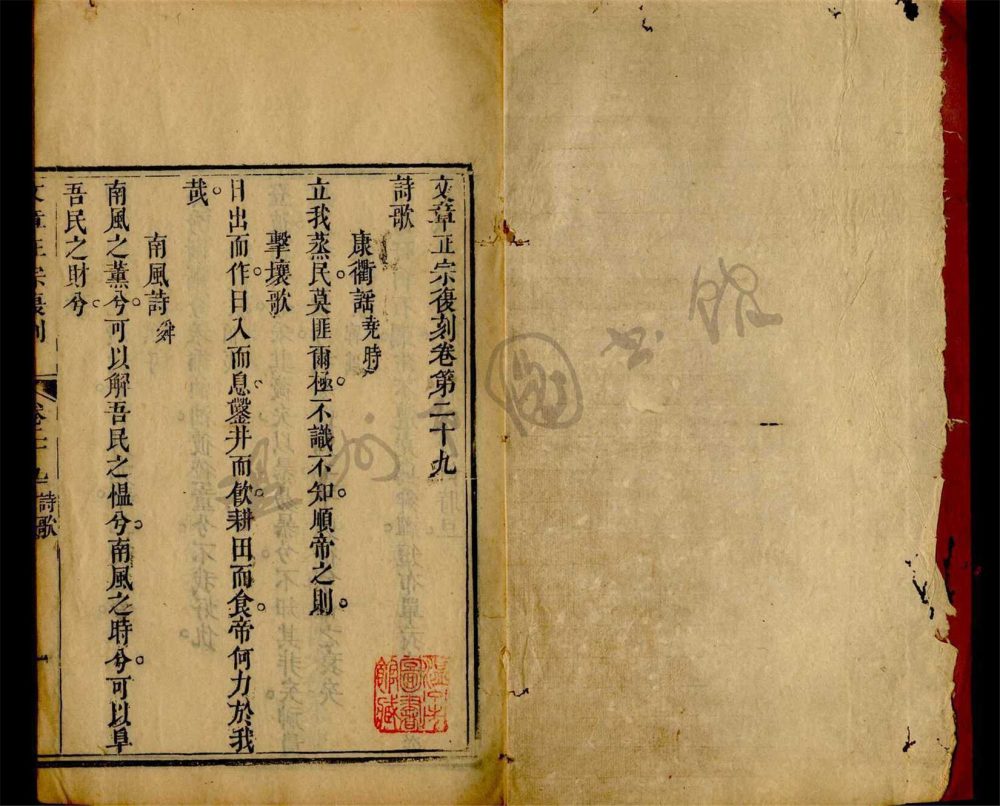 文章正宗復刻卷第二十九
詩歌
康衢謡堯時
立我蒸民莫匪爾極。不識不知。順帝之則。
擊壤歌
日出而作。日入而息。鑿井而飲。耕田而食。帝何力於我
哉。
南風詩舜
南風之薰兮。可以解吾民之慍兮。南風之時兮。可以阜
吾民之財兮。
文章正宗復刻
卷二十九 詩歌
一
溫州市圖書館藏
溫州市圖書館